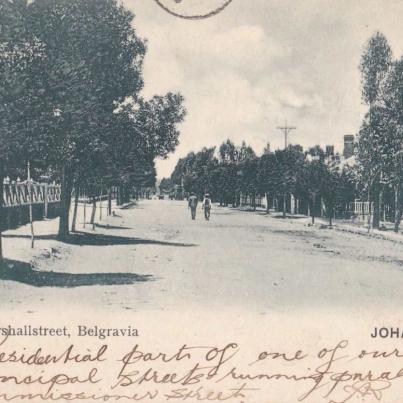 rshallstreet, Belgravia
JOHA
esidential parts of one of our
ncipal streets running paral
mmissioner Street